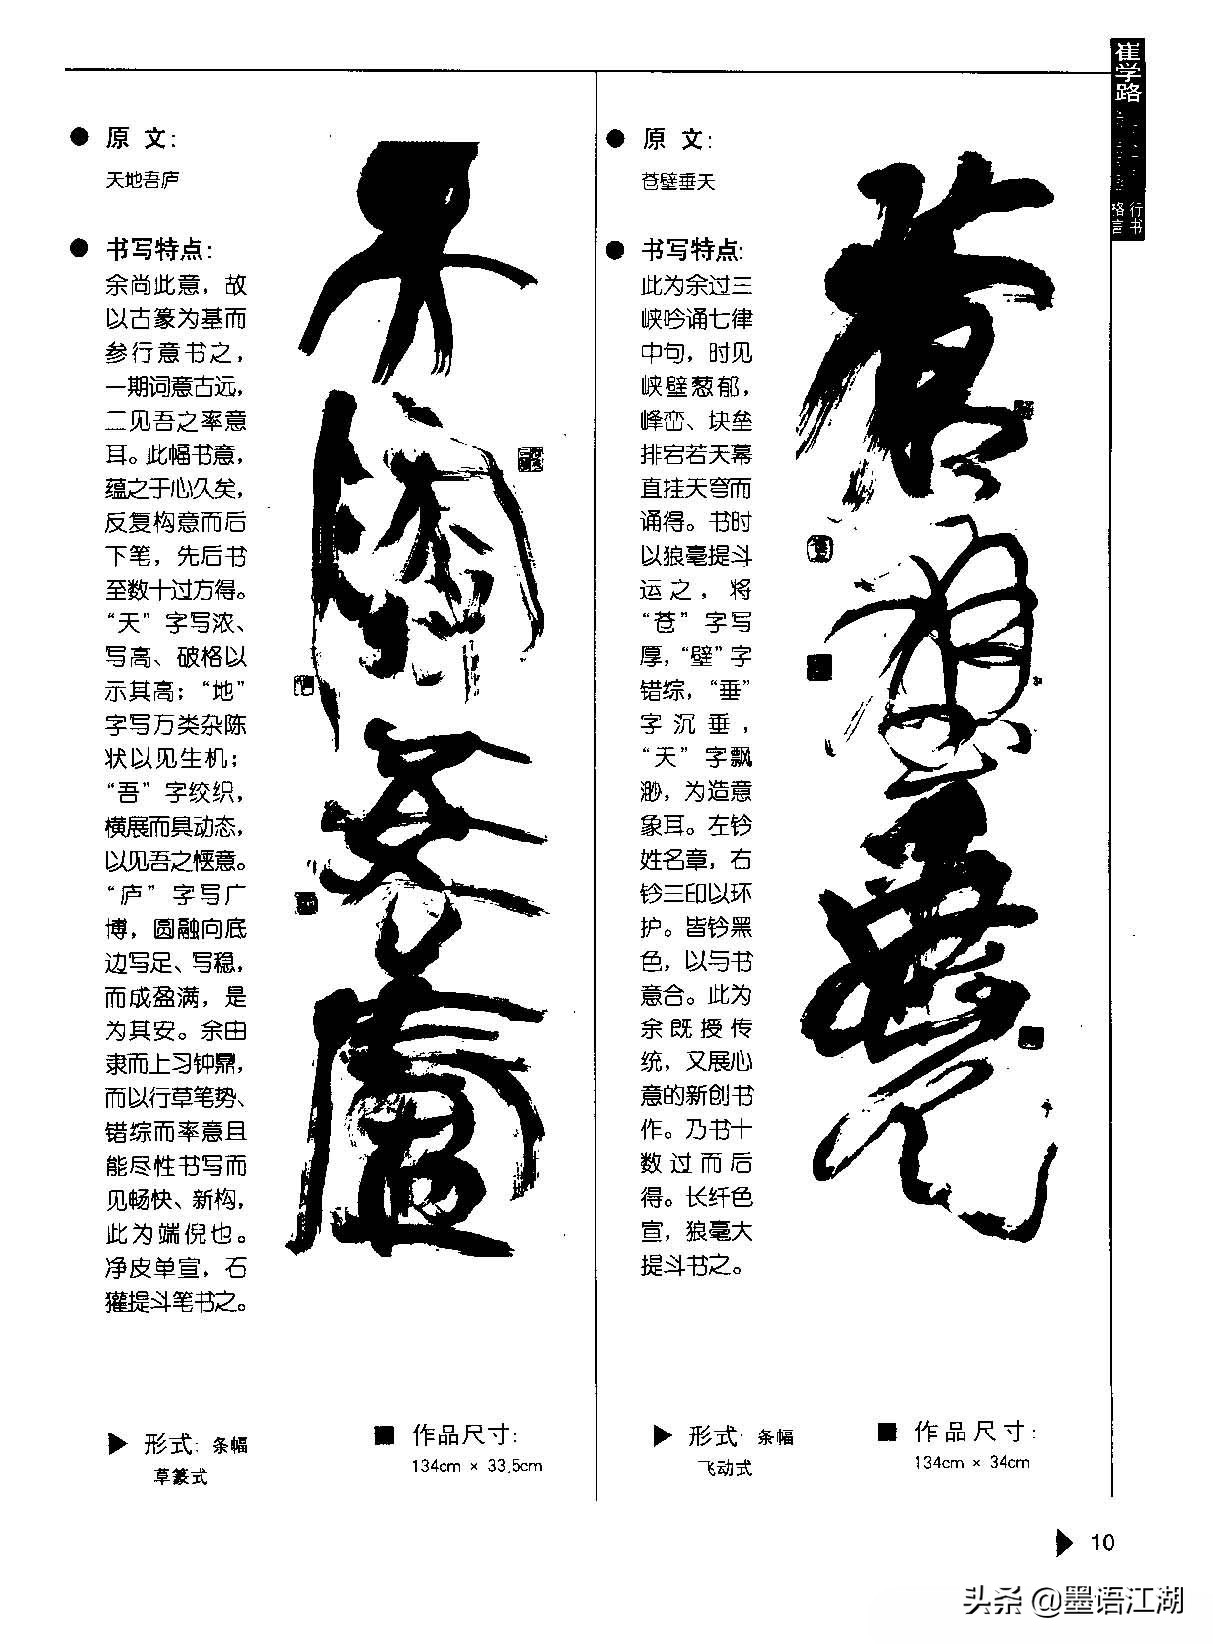 崔学路
行书
格言
原文：
天地吾庐
书写特点：
余尚此意，故
以古篆为基而
参行意书之，
一期词意古远，
二见吾之率意
耳。此幅书意，
蕴之于心久矣，
反复构意而后
下笔，先后书
至数十过方得。
“天”字写浓、
写高、破格以
示其高；“地”
字写万类杂陈
状以见生机；
“吾”字绞织，
横展而具动态，
以见吾之惬意。
“庐”字写广
博，圆融向底
边写足、写稳，
而成盈满，是
为其安。余由
隶而上习钟鼎，
而以行草笔势、
错综而率意且
能尽性书写而
见畅快、新构，
此为端倪也。
净皮单宣，石
獾提斗笔书之。
形式：条幅
草篆式
作品尺寸：
134cm × 33.5cm
原文：
苍壁垂天
书写特点：
此为余过三
峡吟诵七律
中句，时见
峡壁葱郁，
峰峦、块垒
排宕若天幕
直挂天穹而
诵得。书时
以狼毫提斗
运之，将
“苍”字写
厚，“壁”字
错综，“垂”
字沉垂，
“天”字飘
渺，为造意
象耳。左钤
姓名章，右
钤三印以环
护。皆钤黑
色，以与书
意合。此为
余既授传
统，又展心
意的新创书
作。乃书十
数过而后
得。长纤色
宣，狼毫大
提斗书之。
形式：条幅
飞动式
作品尺寸：
134cm × 34cm
天地吾廬
蒼壁垂天
10
头条 @墨语江湖